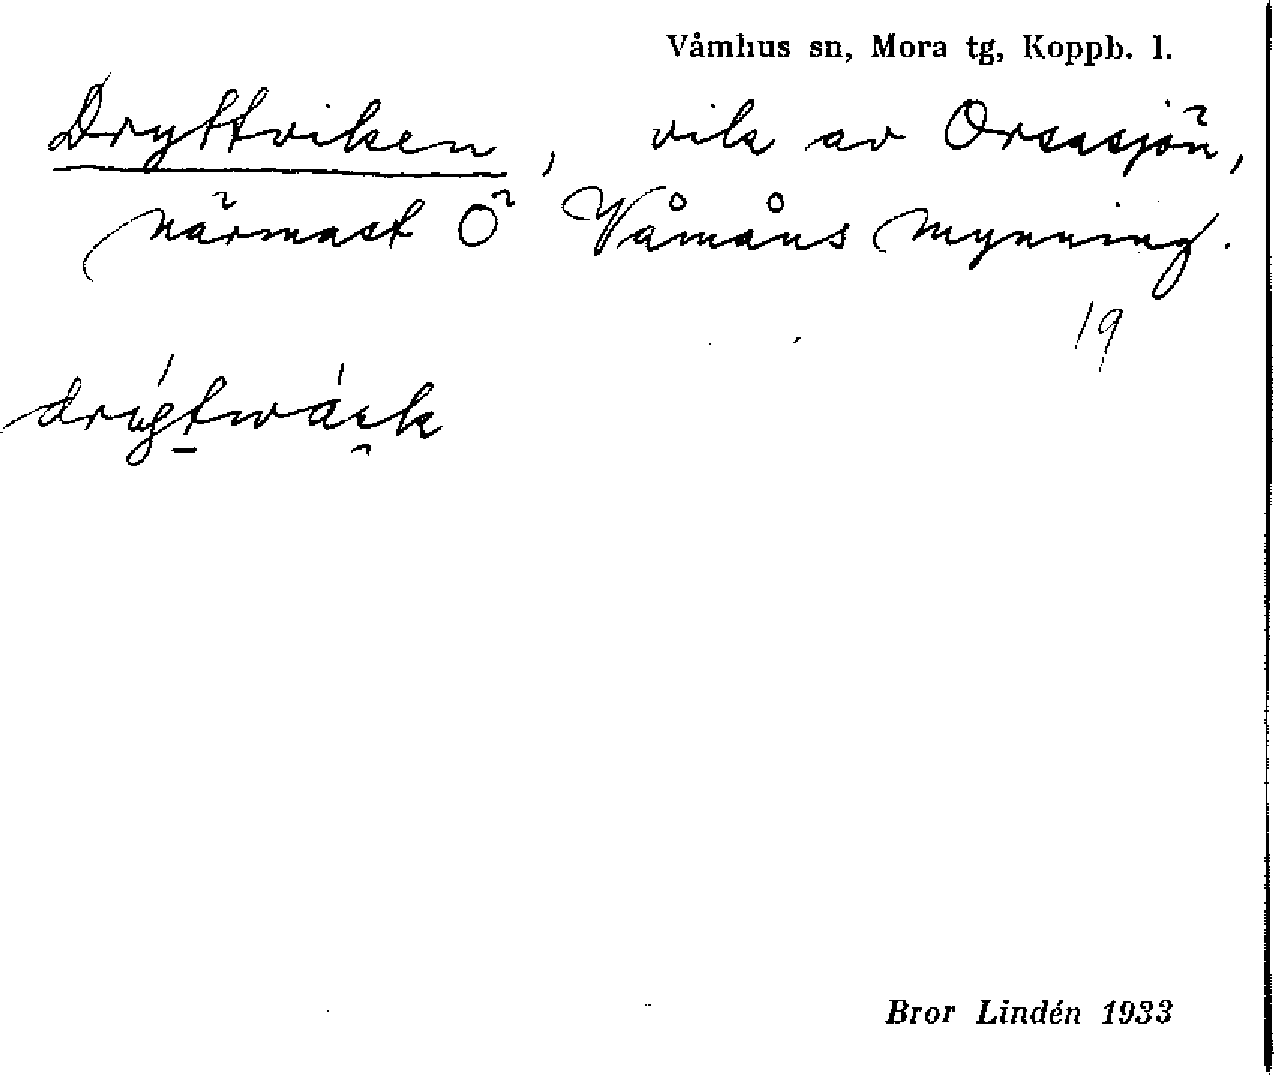 Våmhus sn, Mora tg, Koppb. l.
Dryttviken, vik av Orsasjön,
närmast Ö Våmåns mynning.
19
Bror Lindén 1933